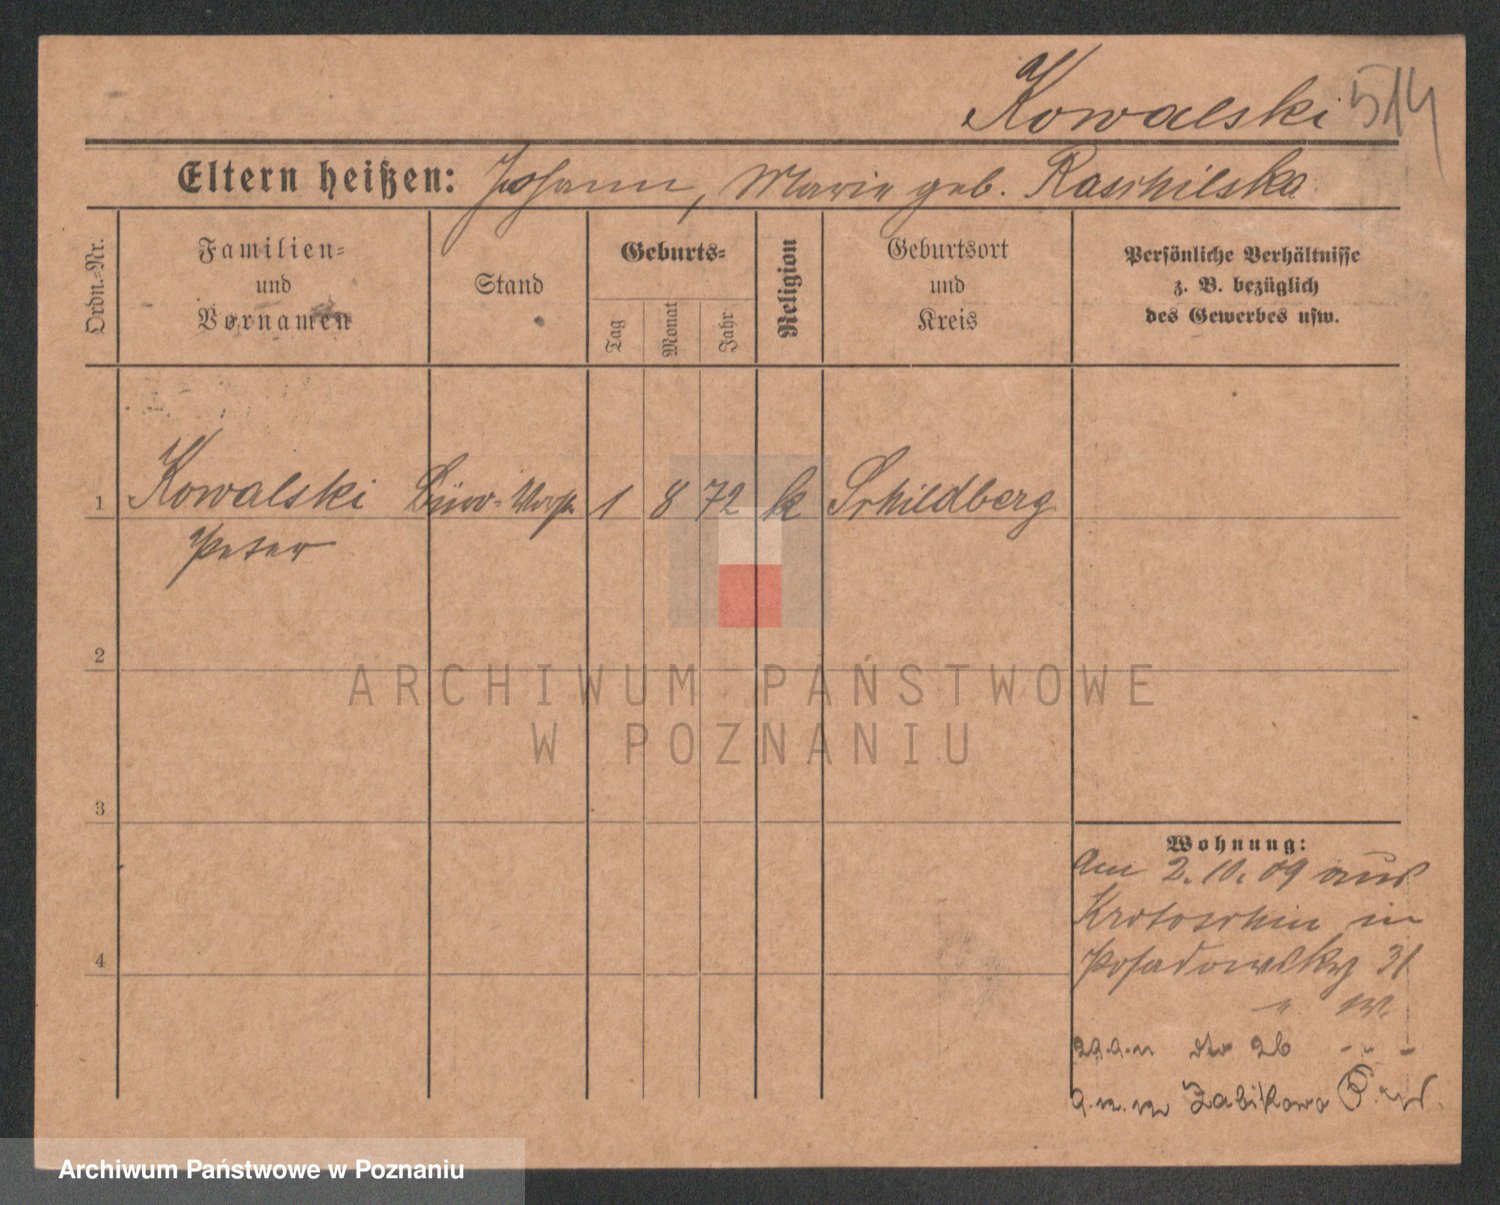 Kowalski 514
Eltern heißen: Johann, Marie geb. Raschilska
Ordn.-Nr.
Familien-
und
Vornamen
Stand
Geburts-
Tag
Monat
Jahr
Religion
Geburtsort
und
Kreis
Persönliche Verhältnisse
z. B. bezüglich
des Gewerbes usw.
1 Kowalski 1 8 72 k Schildberg
Peter
2
3
4
Wohnung:
Am 2.10.09 aus
Krotoschin in
Posadowsky 31
dto 26
Zabikowo
ARCHIWUM PAŃSTWOWE
W POZNANIU
Archiwum Państwowe w Poznaniu